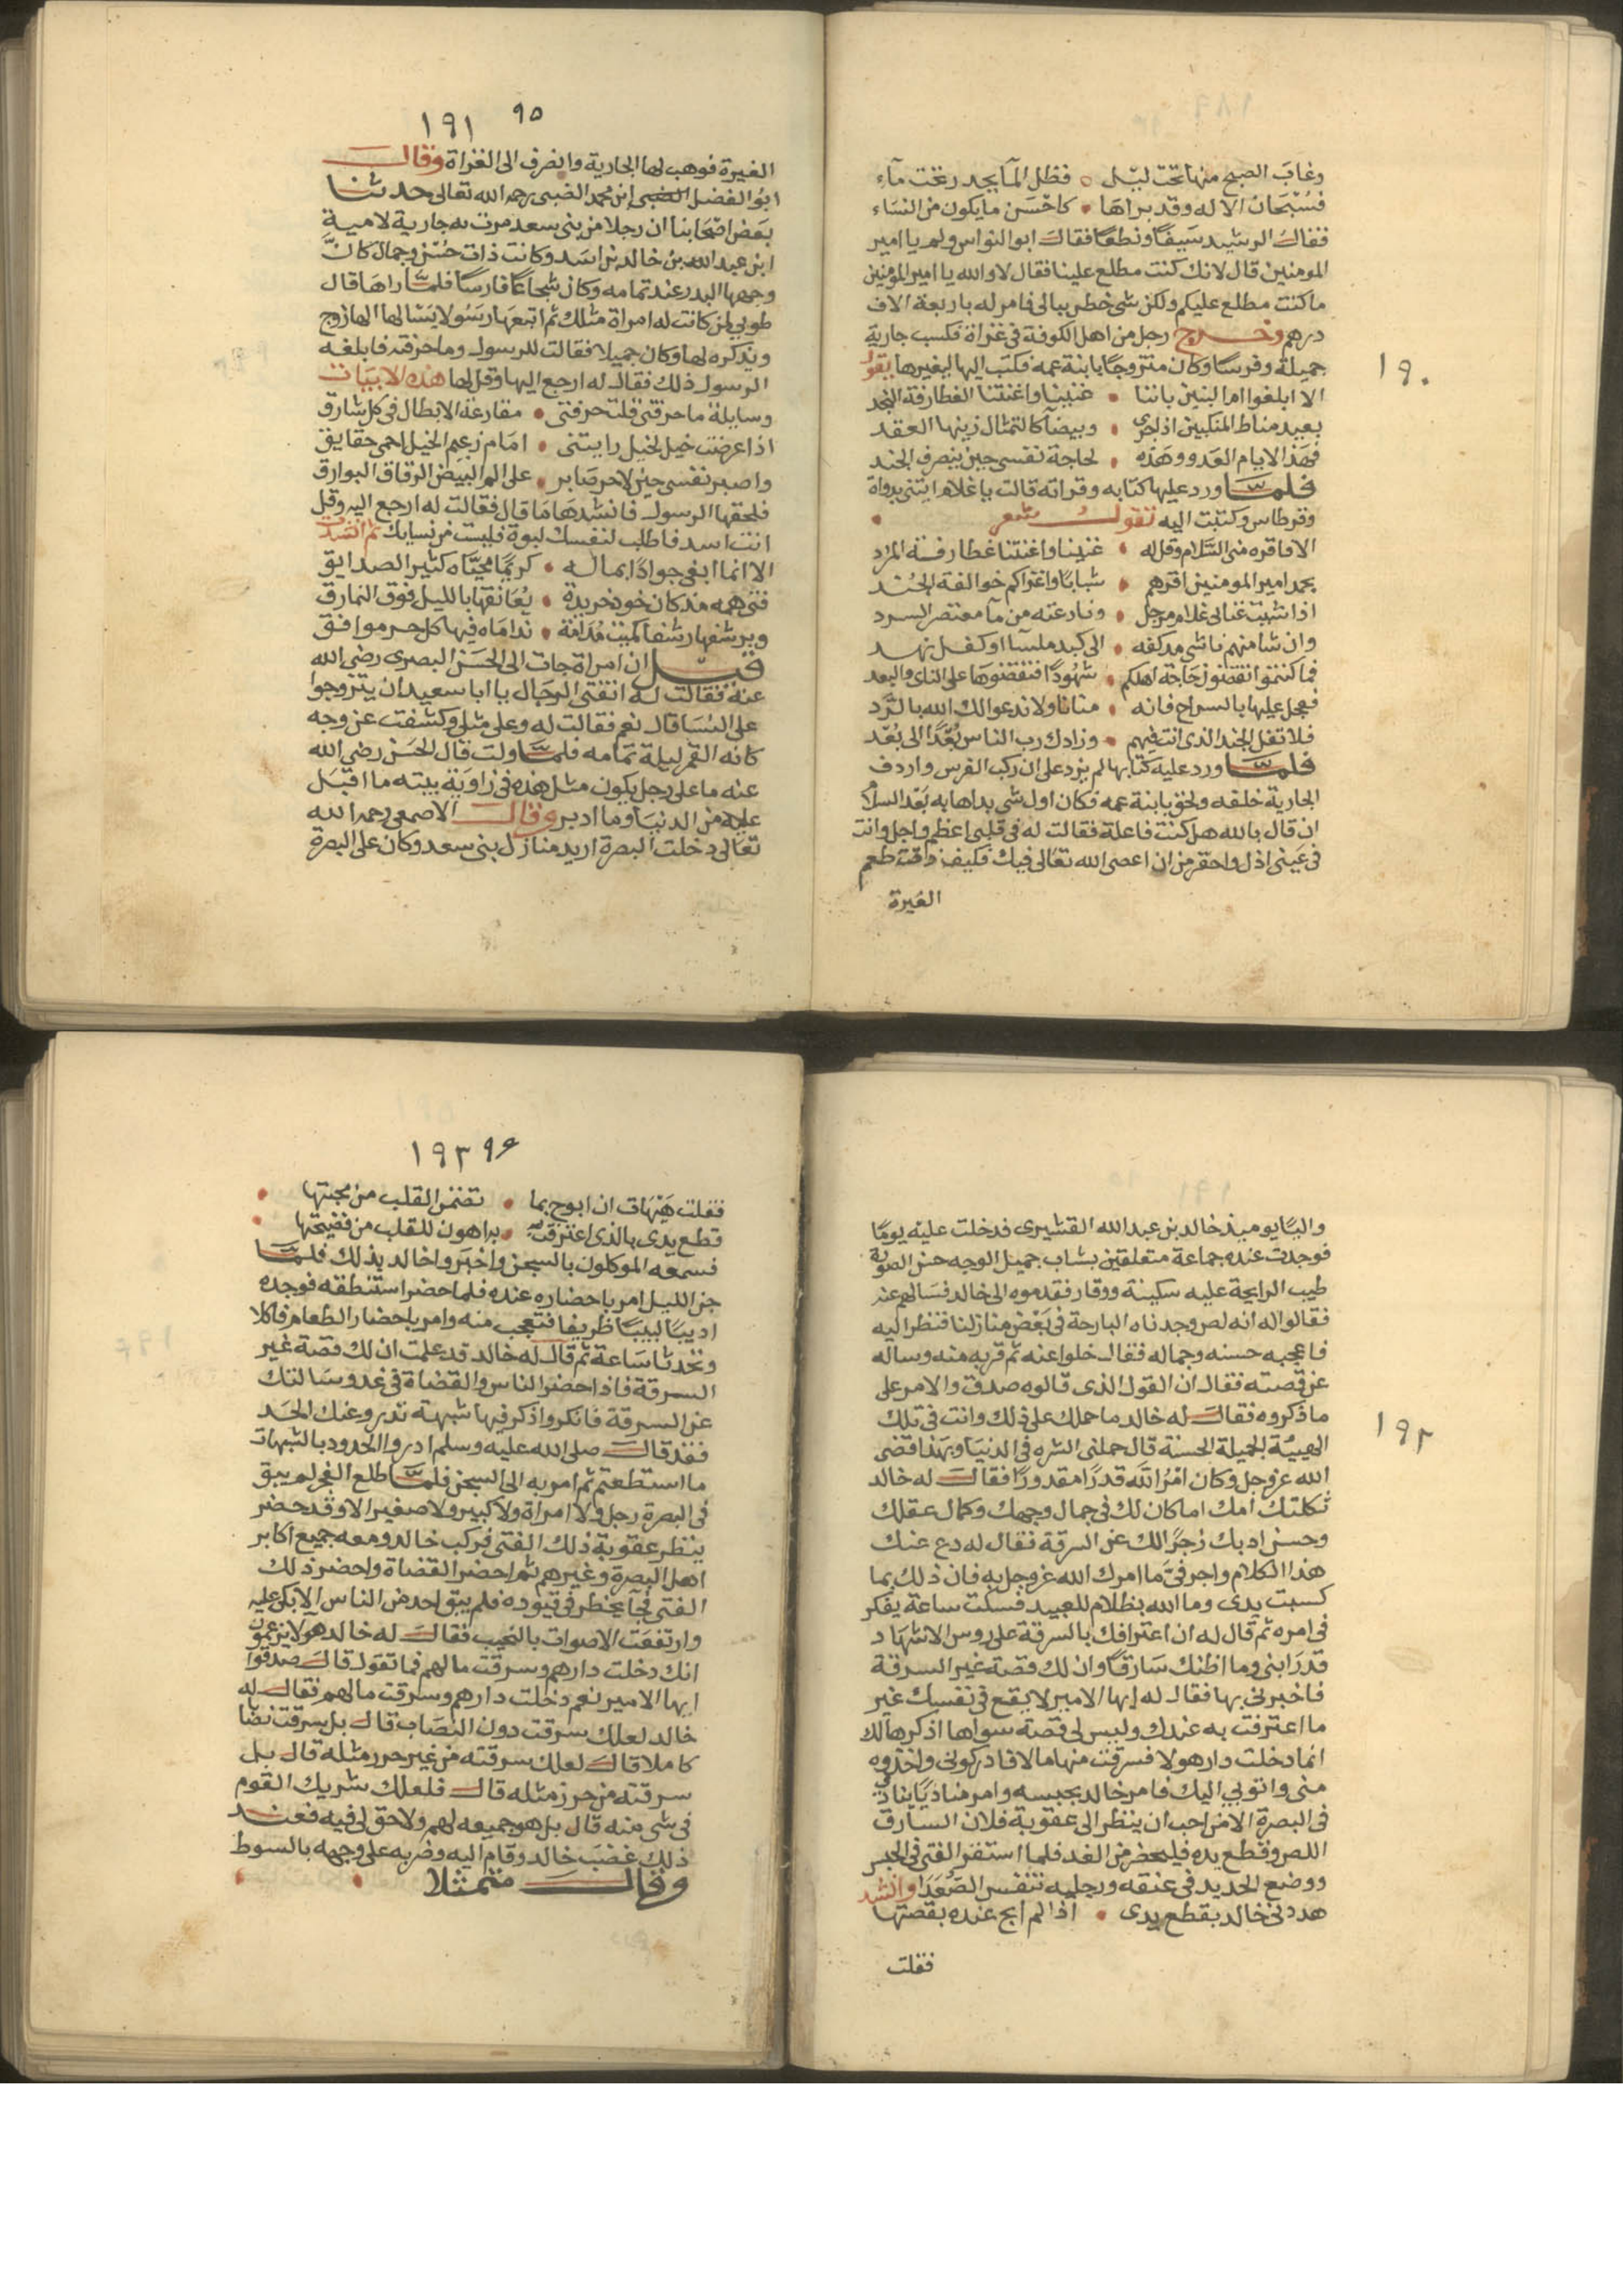 ١٩٠
وغاب الصبح منها تحت ليل ٥ فظل المآ يجد رتحت مآء
فسبحان الاله وقد براها • كاحسن ما يكون من النساء
فقال الرشيد سيفًا ونطعًا فقال ابو النواس ولم يا امير
المومنين قال لانك كنت مطلع علينا فقال لا والله يا امير المومنين
ما كنت مطلع عليكم ولكن شى خطر ببالى فامر له باربعة الاف
درهم وخرج رجل من اهل الكوفة فى غزاة فكسب جارية
جميلة وفرسًا وكان متزوجًا بابنة عمه فكتب اليها ليغيرها يقول
الا ابلغوا ام البنين باننا • غنينا واغنتنا الغطارفة النجد
بعيد مناط المنكبين اذا جرى • وبيضآ كالتمثال زينها العقد
فهذا لايام العدو وهذه • لحاجة نفسى حين ينصرف الجند
فلما ورد عليها كتابه وقراته قالت يا غلام ايتنى بدواة
وقرطاس وكتبت اليه تقول شعر •
الا فاقره منى السلام وقل له • غنينا واغنتنا غطارفة المرد
بحمد امير المومنين اقرهم • شبابًا واغزاكم خوالفة الجند
اذا شيت غنانى غلام مرجل • ونازعته من مآ معتصر السرد
وان شا منهم ناشى مد كفه • الى كبد ملسآ او كفل نهد
فما كنتم تقضون حاجة اهلكم • شهودًا فتقضوها على الناى والبعد
فعجل عليها بالسراح فانه • منانا ولا ندعوا لك الله بالرد
فلا تفل الجند الذى انت فيهم • وزادك رب الناس بُعدًا الى بعد
فلما ورد عليه كتابها لم يزد على ان ركب الفرس واردف
الجارية خلفه ولحق بابنة عمه فكان اول شى بداها به بعد السلام
ان قال بالله هل كنت فاعلة فقالت له فى قلبى اعظم واجل وانت
فى عينى اذل واحقر من ان اعصى الله تعالى فيك فكيف ذقت طعم
الغيرة
١٩١ ٩٥
الغيرة فوهب لها الجارية وانصرف الى الغزاة وقال
ابو الفضل ابن محمد الضبى رحمه الله تعالى حدثنا
بعض اصحابنا ان رجلا من بنى سعد مرت به جارية لامية
ابن عبد الله بن خالد بن اسد وكانت ذات حسن وجمال كانّ
وجهها البدر عند تمامه وكان شجاعًا فارسًا فلما راها قال
طوبى لمن كانت له امراة مثلك ثم اتبعها رسولا يسالها الها زوج
ويذكره لها وكان جميلا فقالت للرسول وما حرفته فابلغه
الرسول ذلك فقال له ارجع اليها وقل لها هذه الابيات
وسايلة ما حرفتى قلت حرفتى • مقارعة الابطال فى كل شارق
اذا عرضت خيل لخيل رايتنى • امام زعيم الخيل احمى حقايق
واصبر نفسى حين لا حر صابر • على الم البيض الرقاق البوارق
فلحقها الرسول فانشدها ما قال فقالت له ارجع اليه وقل
انت اسد فاطلب لنفسك لبوة فليست من نسايك ثم انشدت
الا انما ابغى جوادًا بماله • كريمًا محيّاه كثير الصدايق
فتى همه مذ كان خود خريدة • يعانقها بالليل فوق النمارق
ويرشفها رشفا كميت مدامة • نداماه فيها كل حر موافق
قيل ان امراة جات الى الحسن البصرى رضى الله
عنه فقالت له اتفتى الرجال يا ابا سعيد ان يتزوجوا
على النسا قال نعم فقالت له وعلى مثلى وكشفت عن وجه
كانه القمر ليلة تمامه فلما ولت قال الحسن رضى الله
عنه ما على رجل يكون مثل هذه فى زاوية بيته ما اقبل
عليه من الدنيا وما ادبر وقال الاصمعى رحمه الله
تعالى دخلت البصرة اريد منازل بنى سعد وكان على البصرة
١٩٢
واليًا يوميذ خالد بن عبد الله القشيرى فدخلت عليه يومًا
فوجدت عنده جماعة متعلقين بشاب جميل الوجه حسن الصورة
طيب الرايحة عليه سكينة ووقار فقدموه الى خالد فسالهم عنه
فقالوا له انه لص وجدناه البارحة فى بعض منازلنا فنظر اليه
فاعجبه حسنه وجماله فقال خلوا عنه ثم قربه منه وساله
عن قصته فقال ان القول الذى قالوه صدق والامر على
ما ذكروه فقال له خالد ما حملك على ذلك وانت فى تلك
الهيبة الجميلة الحسنة قال حملنى الشره فى الدنيا وبهذا قضى
الله عز وجل وكان امر الله قدرًا مقدورًا فقال له خالد
ثكلتك امك اما كان لك فى جمال وجهك وكمال عقلك
وحسن ادبك زجرًا لك عن السرقة فقال له دع عنك
هذا الكلام واجر فىّ ما امرك الله عز وجل به فان ذلك بما
كسبت يدى وما الله بظلام للعبيد فسكت ساعة يفكر
فى امره ثم قال له ان اعترافك بالسرقة على روس الاشهاد
قد رابنى وما اظنك سارقًا وان لك قصة غير السرقة
فاخبرنى بها فقال له ايها الامير لا يقع فى نفسك غير
ما اعترفت به عندك وليس لى قصة سواها اذكرها لك
انما دخلت دار هولا فسرقت منها مالا فادركونى واخذوه
منى واتوبى اليك فامر خالد بحبسه وامر مناديًا ينادى
فى البصرة الا من احب ان ينظر الى عقوبة فلان السارق
اللص وقطع يده فليحضر من الغد فلما استقر الفتى فى الحبس
ووضع الحديد فى عنقه ورجليه تنفس الصعدا وانشد
هددنى خالد بقطع يدى • اذا لم ابح عنده بقصتها
فقلت
١٩٣ ٩٦
فقلت هيهات ان ابوح بما • تضمن القلب من محبتها •
قطع يدى بالذى اعترفت به • اهون للقلب من فضيحتها •
فسمعه الموكلون بالسجن واخبروا خالد بذلك فلما
جن الليل امر باحضاره عنده فلما حضر استنطقه فوجده
اديبًا لبيبًا ظريفا فتعجب منه وامر باحضار الطعام فاكلا
وتحدثا ساعة ثم قال له خالد قد علمت ان لك قصة غير
السرقة فاذا حضر الناس والقضاة فى غد وسالتك
عن السرقة فانكر واذكر فيها شبهة تدرو عنك الحد
فقد قال صلى الله عليه وسلم ادروا الحدود بالشبهات
ما استطعتم ثم امر به الى السجن فلما طلع الفجر لم يبق
فى البصرة رجل ولا امراة ولا كبير ولا صغير الا وقد حضر
ينظر عقوبة ذلك الفتى فركب خالد ومعه جميع اكابر
اهل البصرة وغيرهم ثم احضر القضاة واحضر ذلك
الفتى فجآ يخطر فى قيوده فلم يبق احد من الناس الا بكى عليه
وارتفعت الاصوات بالنحيب فقال له خالد هولا يزعمون
انك دخلت دارهم وسرقت مالهم فما تقول قال صدقوا
ايها الامير نعم دخلت دارهم وسرقت مالهم فقال له
خالد لعلك سرقت دون النصاب قال بل سرقت نصابا
كاملا قال لعلك سرقته من غير حرز مثله قال بل
سرقته من حرز مثله قال فلعلك شريك القوم
فى شى منه قال بل هو جميعه لهم ولا حق لى فيه فعند
ذلك غضب خالد وقام اليه وضربه على وجهه بالسوط
وقال متمثلا • •